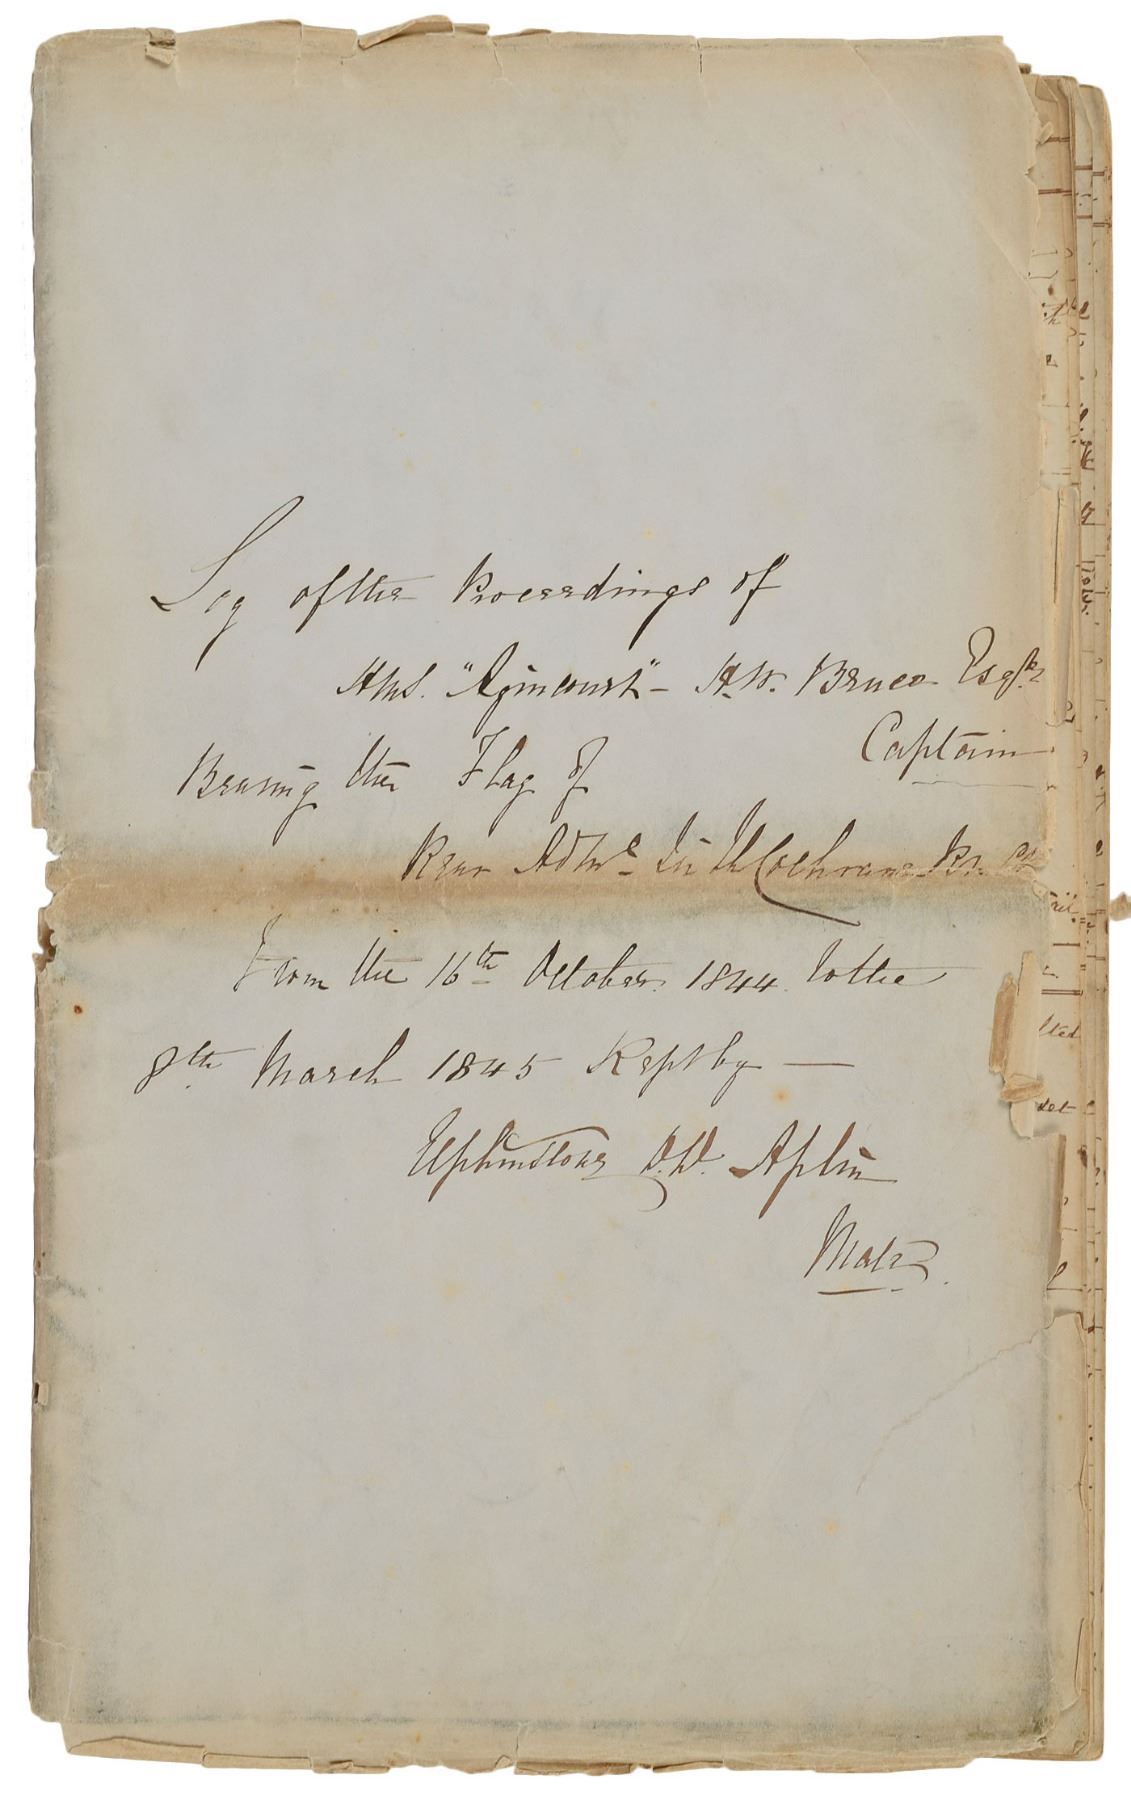 Log of the Proceedings of
HMS. "Agincourt" - H.W. Bruce Esqre
Captain
Bearing the Flag of
Rear Adml Sir Th Cochrane Kt. CB
From the 16th October 1844 to the
8th March 1845 Kept by —
Elphinstone D.D. Aplin
Mate